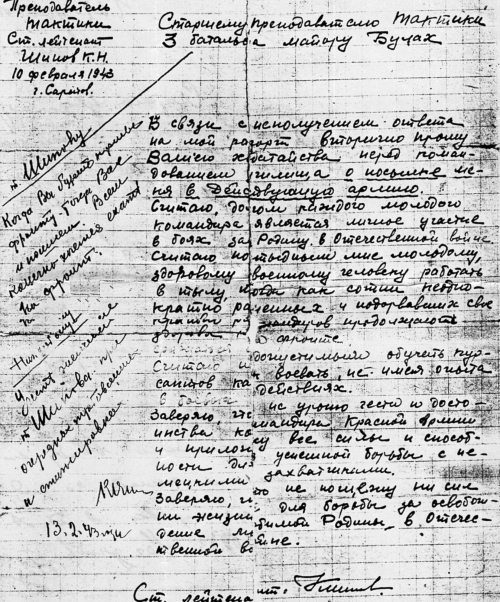 Преподаватель
тактики
Ст. лейтенант
Шипов К.Н.
10 февраля 1943
г. Саратов.
Старшему преподавателю тактики
3 батальона майору Булах
В связи с неполучением ответа
на мой рапорт вторично прошу
Вашего ходатайства перед коман-
дованием училища о посылке ме-
ня в Действующую армию.
Считаю, долгом каждого молодого
командира является личное участие
в боях за Родину, в Отечественной войне
Считаю постыдным мне молодому,
здоровому военному человеку работать
в тылу, тогда как сотни неодно-
кратно раненных и подорвавших свое
продолжают
фронте.
Считаю
допустимым обучать кур-
сантов
воевать, не имея опыта
в боевых действиях.
Заверяю, что не уроню чести и досто-
инства командира Красной Армии
и приложу все силы и способ-
ности для успешной борьбы с не-
мецкими захватчиками.
Заверяю, что не пощажу ни сил
ни жизни для борьбы за освобож-
дение любимой Родины, в Отече-
ственной войне.
Ст. лейтенант.
т. Шипову
Когда Вы будете нужны
фронту, тогда Вас
и пошлем. Всем
конечно хочется ехать
на фронт.
Нач.
Учесть желание
т. Шипова при
очередном
и стажировке
13.2.43